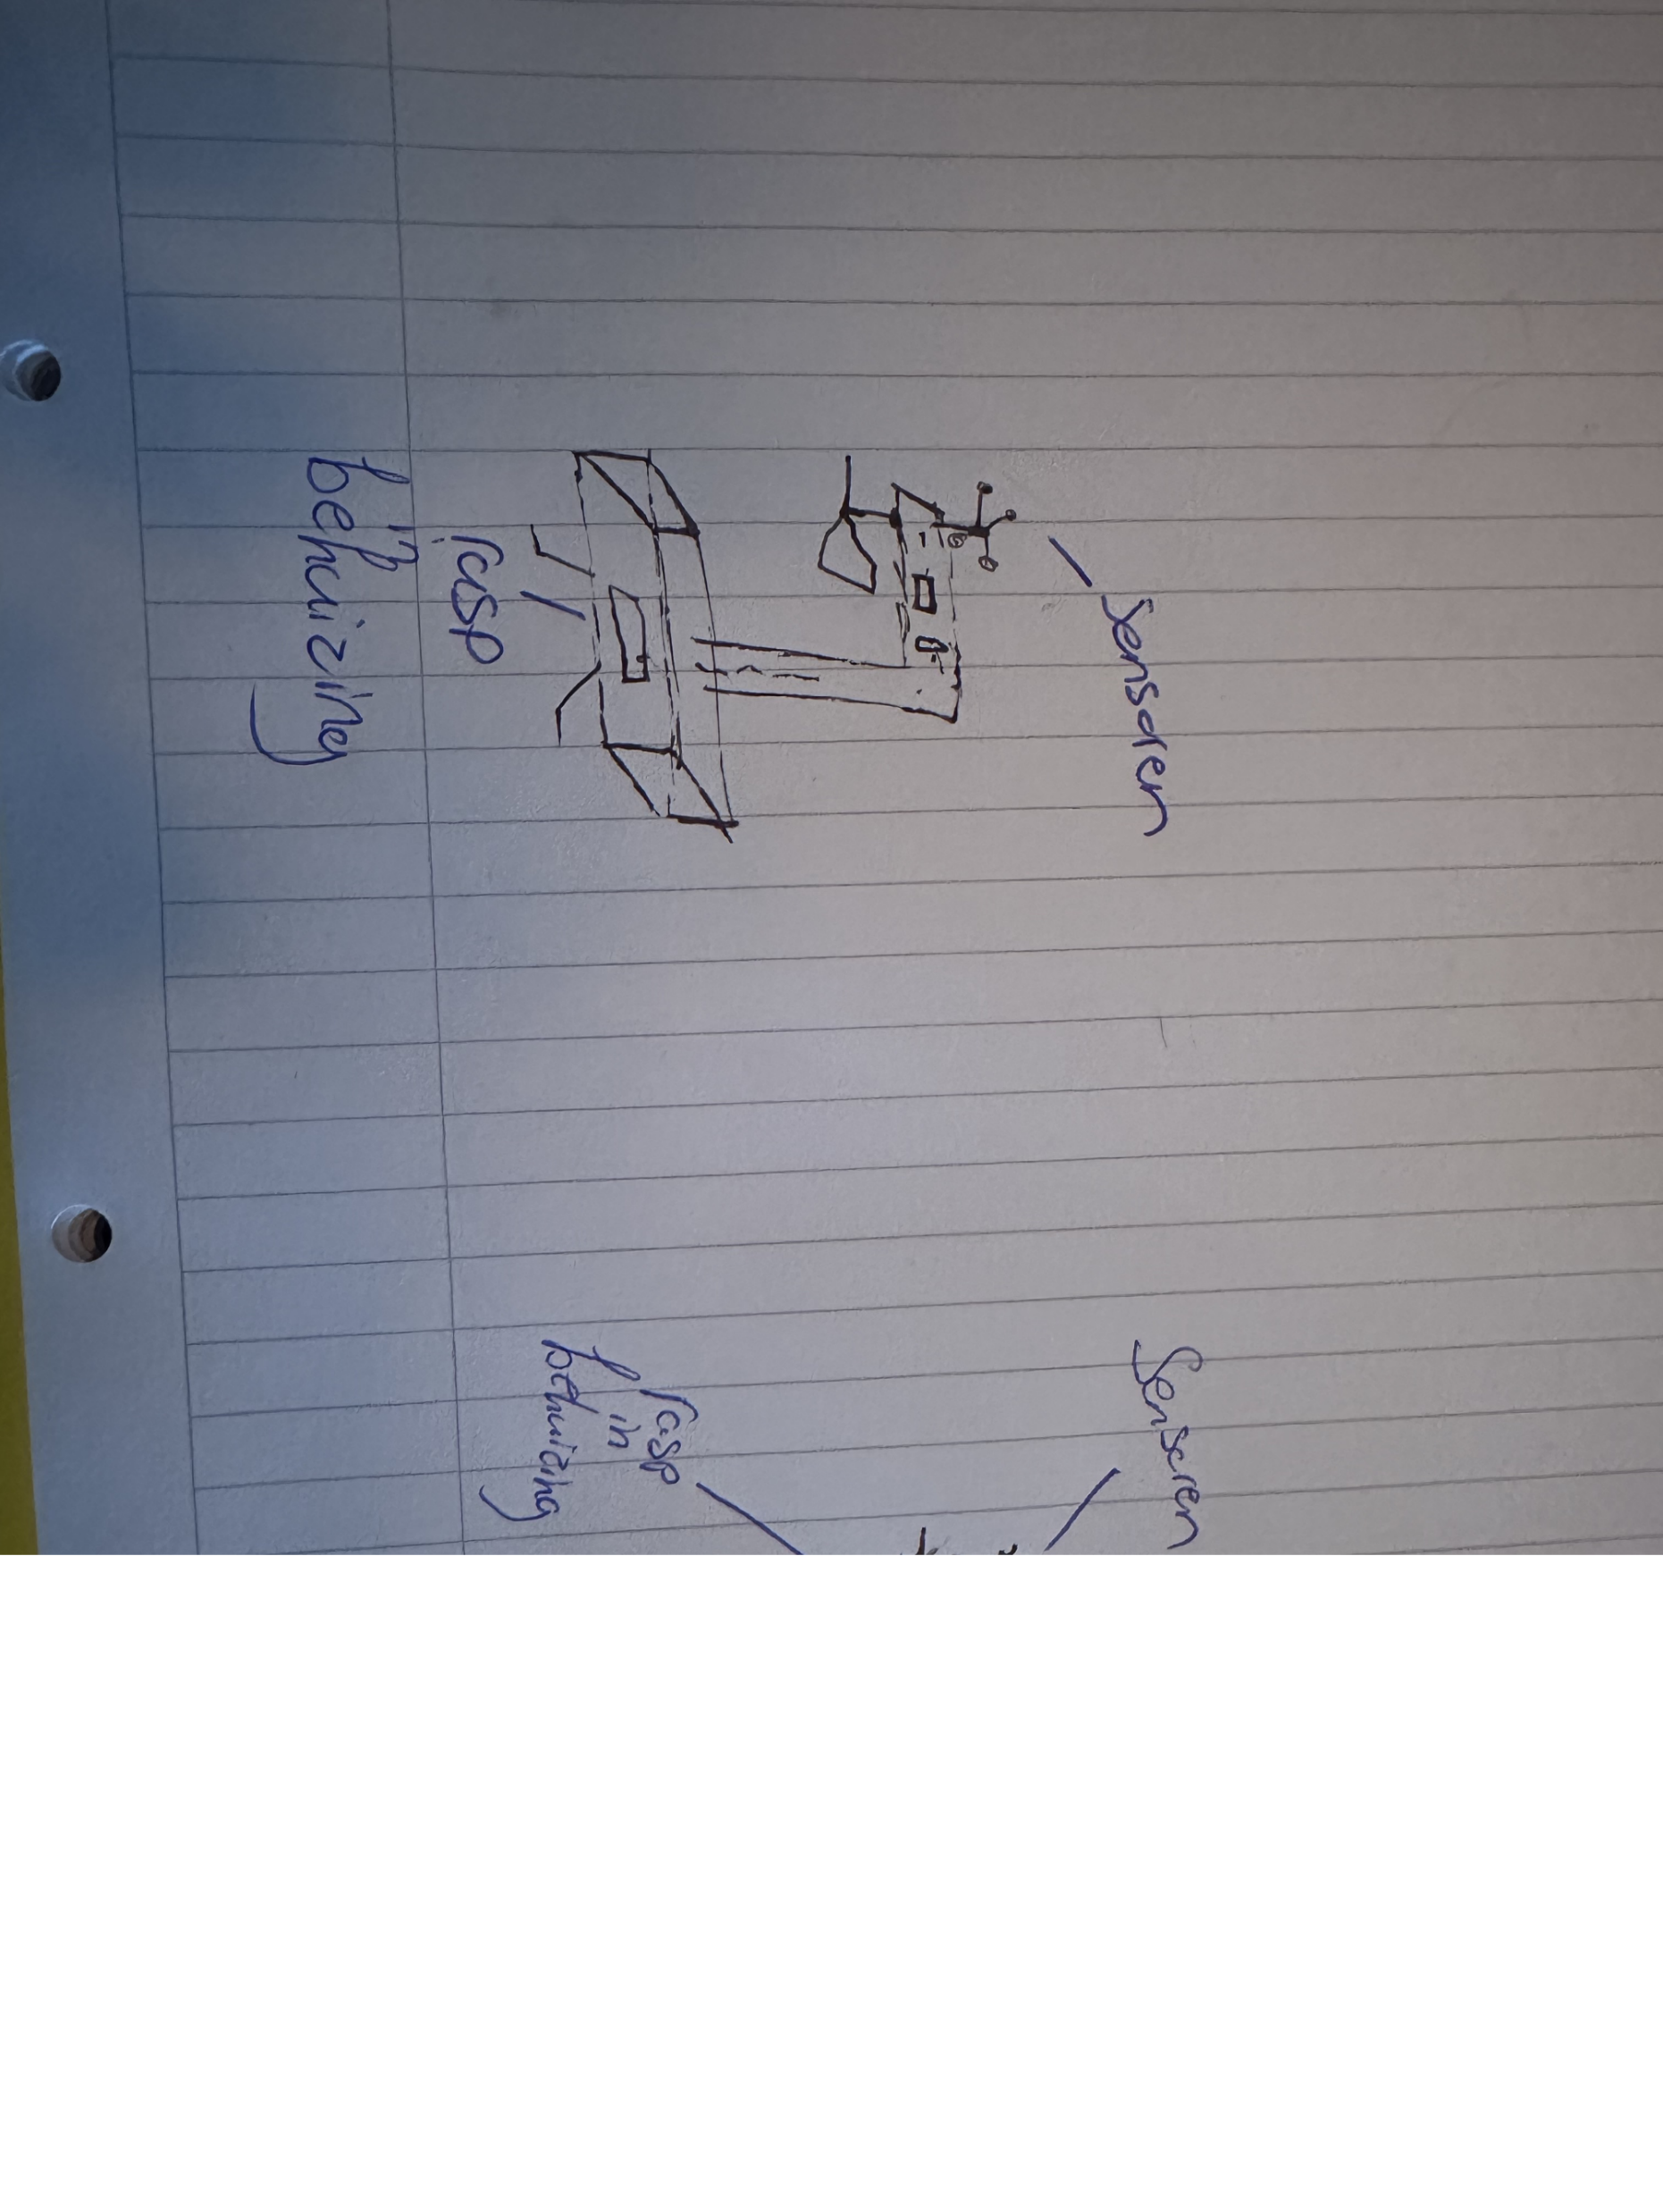 Sensoren
rasp
in
behuizing
Sensoren
rasp
in
behuizing